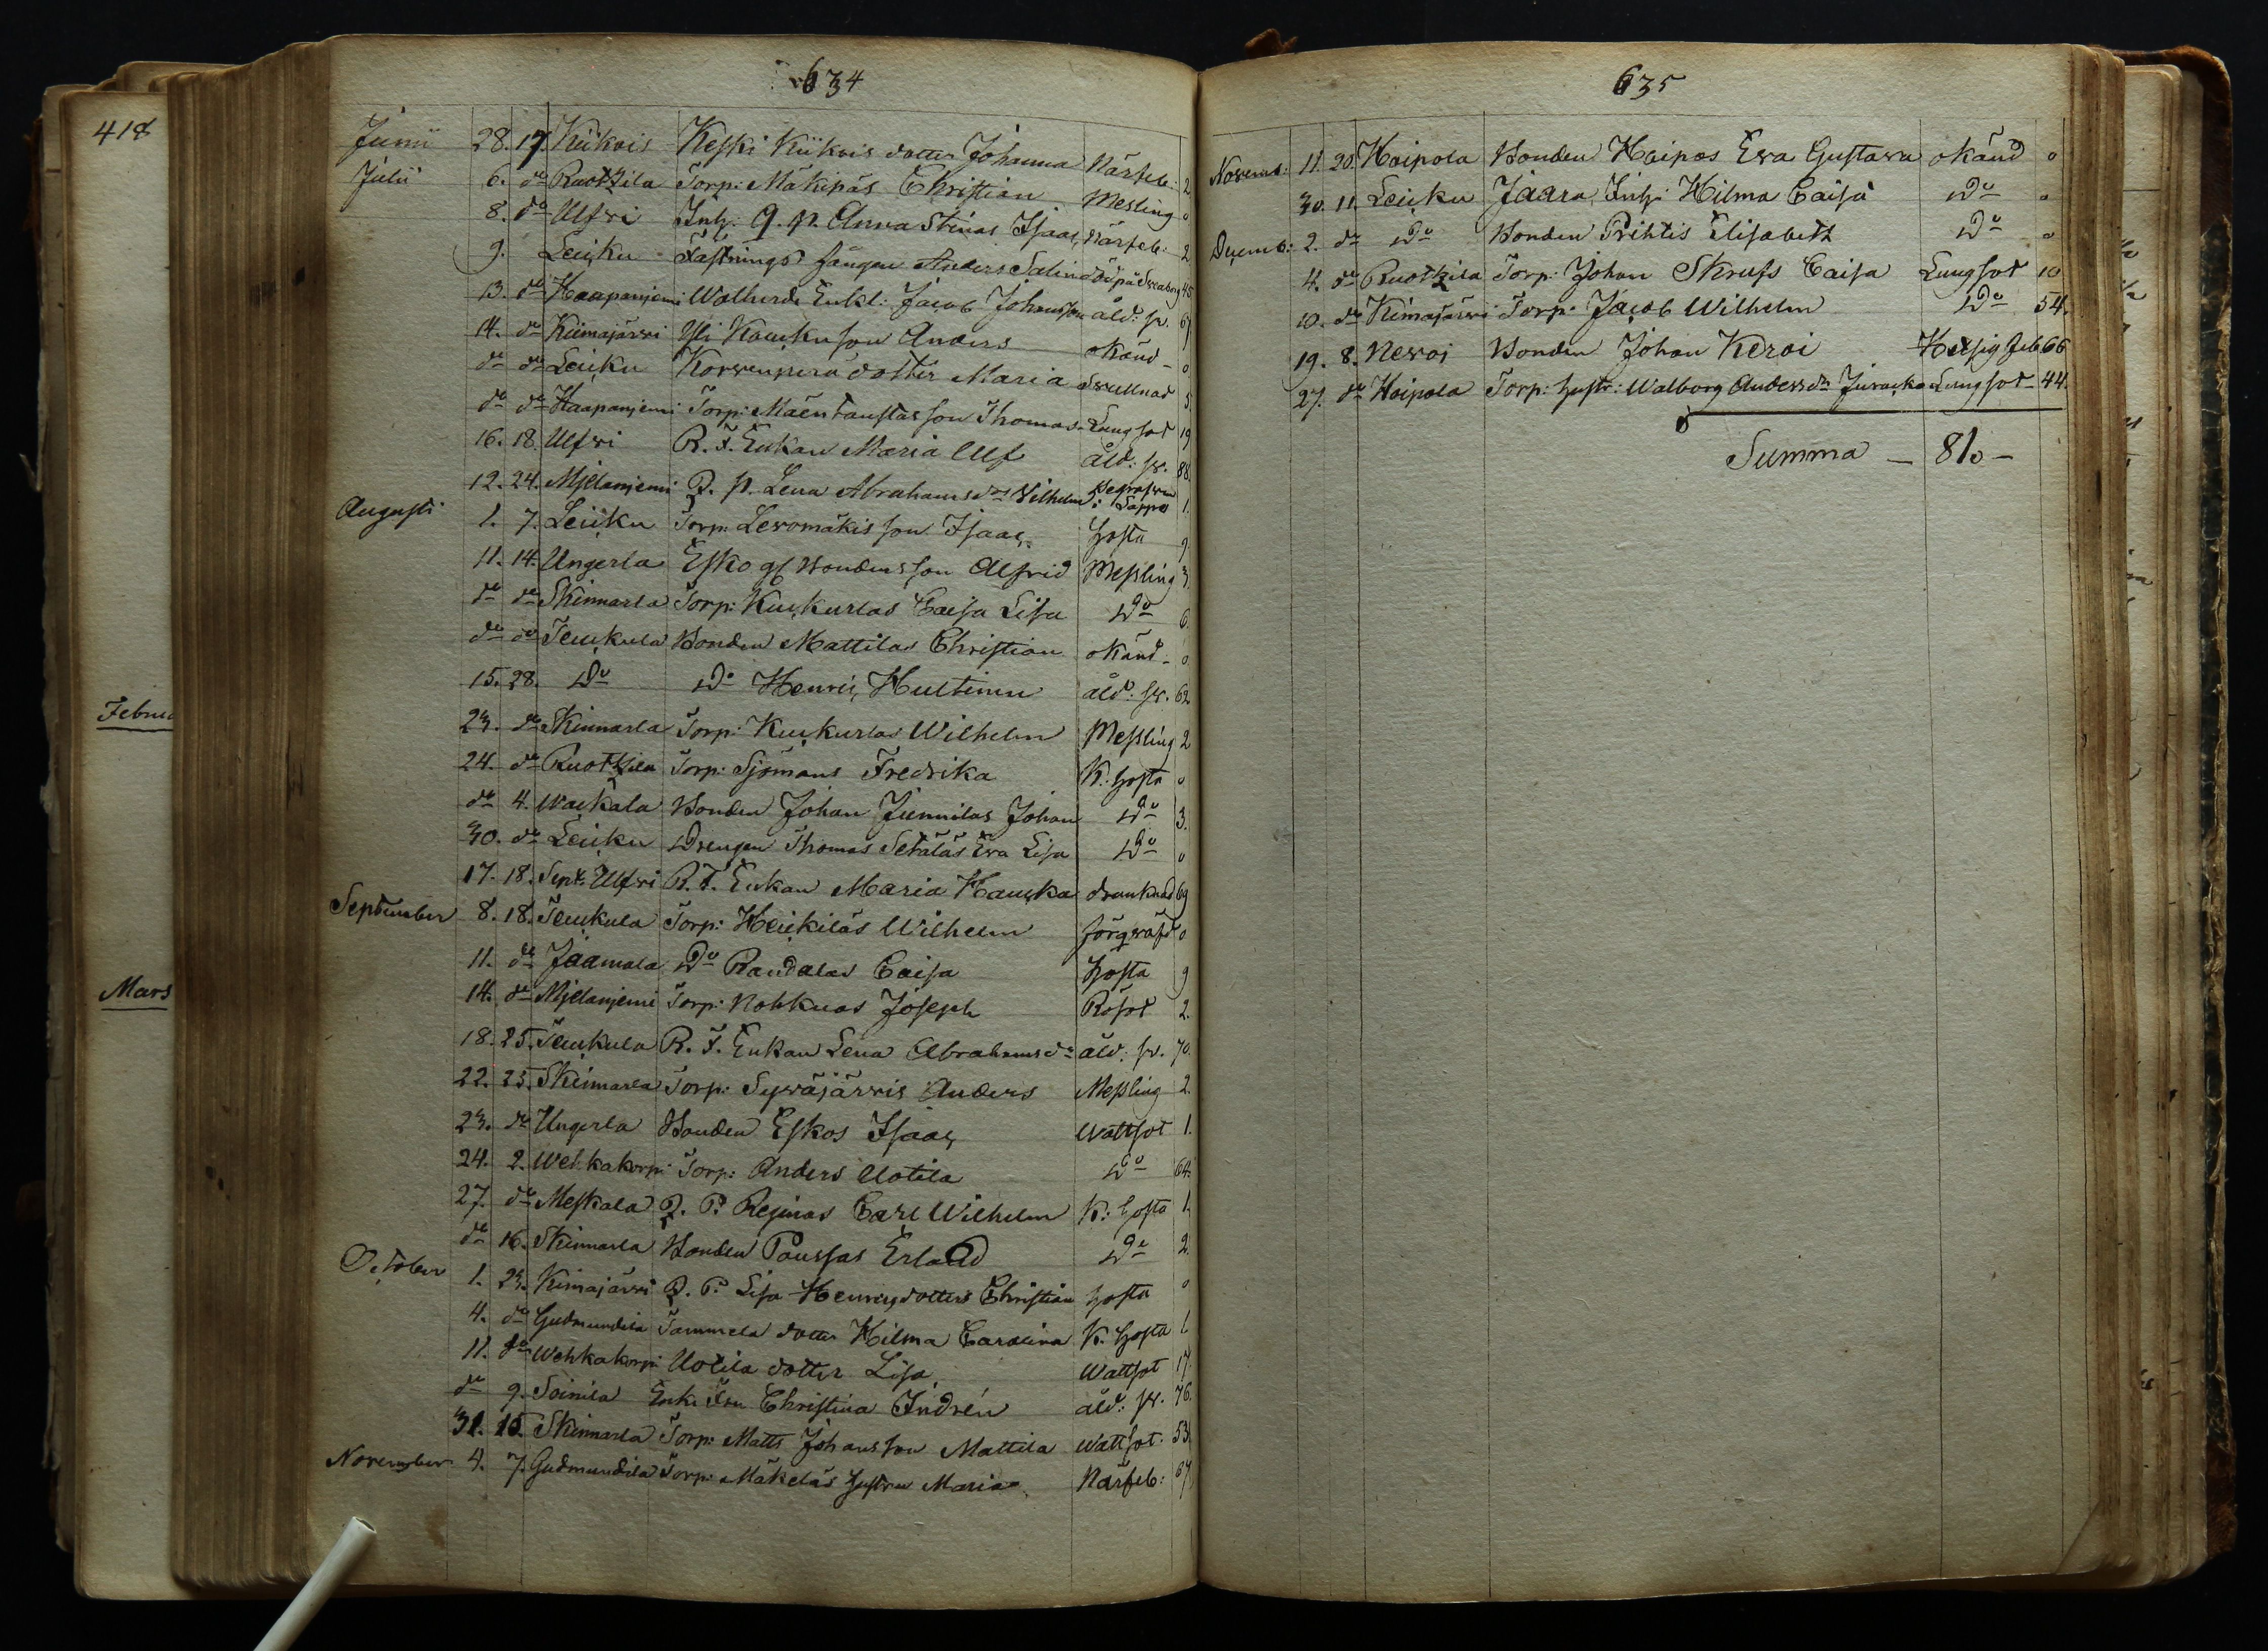 418
Febru
Mars
634
Junii 28. 17. Kiikois Keski Kiikois dotter Johanna Närfeb: 2
Julii 6. do Ruotzila Torp: Mäkipäs Christian Mesling 0
8. do Ulfvi Inh: Q. p. Anna Stinas Isaac Närfeb: 2
9. Leuku Fästnings fången Anders Salin död på Sveaborg 45
13. do Haapanjemi Wälburdi Enkl: Jacob Johansson åld: sv. 67
14. do Kiimajärvi Yli Kaucku son Anders okänd - 0
do do Leuku Korvenperä dotter Maria Svullnad 5.
do do Haapanjemi Torp: Mäentaustas son Thomas Lungsot 19
16. 18. Ulfvi R. F. Enkan Maria Ulf åld: sv. 88.
12. 24. Mjelanjemi Q. p. Lena Abrahamsdrs Vilhelm Begrafven i Lappo 1.
Augusti 1. 7. Leuku Torp: Levomäkis son Isaac hosta 9.
11. 14. Ungerla Esko gl Bondens son Alfrid Messling 3.
do do Skinnarla Torp: Kuckurlas Caisa Lisa Do 6.
do do Teuckula Bonden Mattilas Christian okänd - 0
15. 28. Do Do Henric Hultinen åld: sv. 62
23. do Skinnarla Torp: Kuckurlas Wilhelm Messling 2
24. do Ruotzila Torp: Sjömans Fredrika K. hosta 0
do 4. Wackala Bonden Johan Junnilas Johan Do 3.
30. do Leuku Drengen Thomas Setäläs Eva Lisa Do 0
17. 18. Sept. Ulfvi R. F. Enkan Maria Haucka drunknad 69
September 8. 18. Teuckula Torp: Heickiläs Wilhelm förqwäfd 0
11. do Jaamala Do Randalas Caisa hosta 9
14. do Mjelanjemi Torp: Nohkuas Joseph Rösot 2.
18. 25. Teuckula R. F. Enkan Lena Abrahamsdr åld: sv. 70.
22. 25. Skinnarla Torp: Syväjärvis Anders Messling 2.
23. do Ungerla Bonden Eskos Isaac Wattsot 1.
24. 2. Wehkakorpi Torp: Anders Uotila Do 64.
27. do Meskala Q. P. Reginas Carl Wilhelm K: hosta 1.
do 16. Skinnarla Bonden Paussas Erland Do 2.
October 1. 23. Kimajärvi Q. P. Lisa Henricsdotters Christian hosta 0
4. do Gudmundila Tammela dotter Hilma Carolina K. hosta 1
11. do Wehkakorpi Uotila dotter Lisa Wattsot 17.
do 9. Soinila Enke Fru Christina Indrén åld: sv. 76.
31. 15. Skinnarla Torp: Matts Johansson Mattila Wattsot. 53.
November 4. 7. Gudmundila Torp: Mäkeläs hustru Maria Närfeb: 67
635
Novemb: 11. 20. Haipola Bonden Haipos Eva Gustava okänd 0
30. 11. Leuku Jaara Inh: Hilma Caisa Do 0
Decemb: 2. do Do Bonden Prihtis Elisabeth Do 0
4. do Ruotzila Torp: Johan Skrufs Caisa Lungsot 10
10. do Kimajärvi Torp: Jacob Wilhelm Do 54.
19. 8. Nevoi Bonden Johan Keroi Hetsig feb 66
27. do Haipola Torp: hustr: Walborg Andersdr Juracka Lungsot - 44.
Summa - 81. -